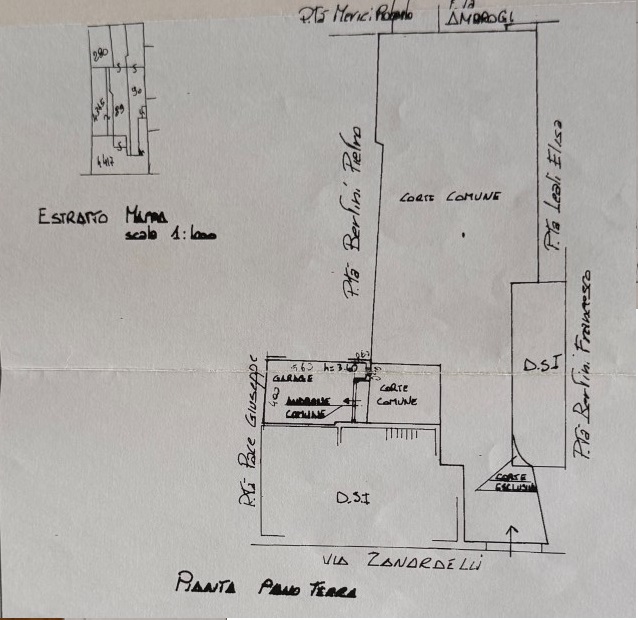 P.tà Merici
P.tà
AMBROGI
280
5
5
90
89
2
5
4417
ESTRATTO MAPPA
scala 1:1000
P.tà Berlini Pietro
CORTE COMUNE
P.tà Leali Elisa
P.tà Berlini Francesco
D.S.I
P.tà Pace Giuseppe
5.60 h=3.60
GARAGE
4.00
ANDRONE
COMUNE
CORTE
COMUNE
D.S.I
CORTE
ESCLUSIVA
VIA ZANARDELLI
PIANTA PIANO TERRA